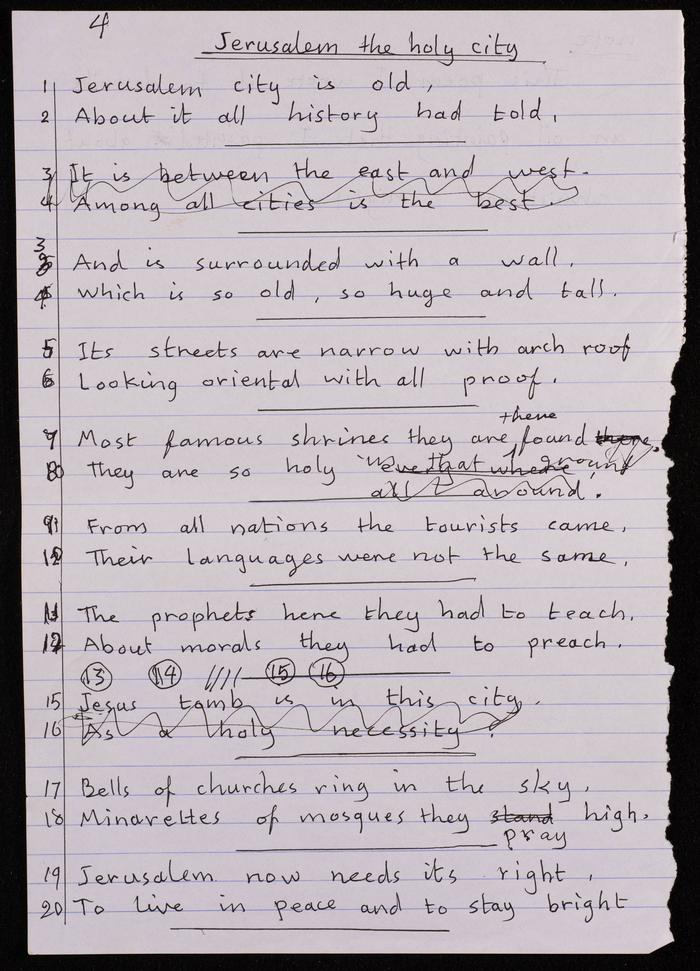 4
Jerusalem the holy city
1 Jerusalem city is old,
2 About it all history had told,
3 It is between the east and west.
4 Among all cities is the best.
3 And is surrounded with a wall,
4 which is so old, so huge and tall.
5 Its streets are narrow with arch roof
6 Looking oriental with all proof.
7 Most famous shrines they are found there.
there
8 They are so holy in that where around
all around.
9 From all nations the tourists came,
10 Their languages were not the same,
11 The prophets here they had to teach,
12 About morals they had to preach.
13 14 //// 15 16
15 Jesus tomb is in this city.
16 As a holy necessity.
17 Bells of churches ring in the sky,
18 Minarettes of mosques they stand high.
pray
19 Jerusalem now needs its right,
20 To live in peace and to stay bright